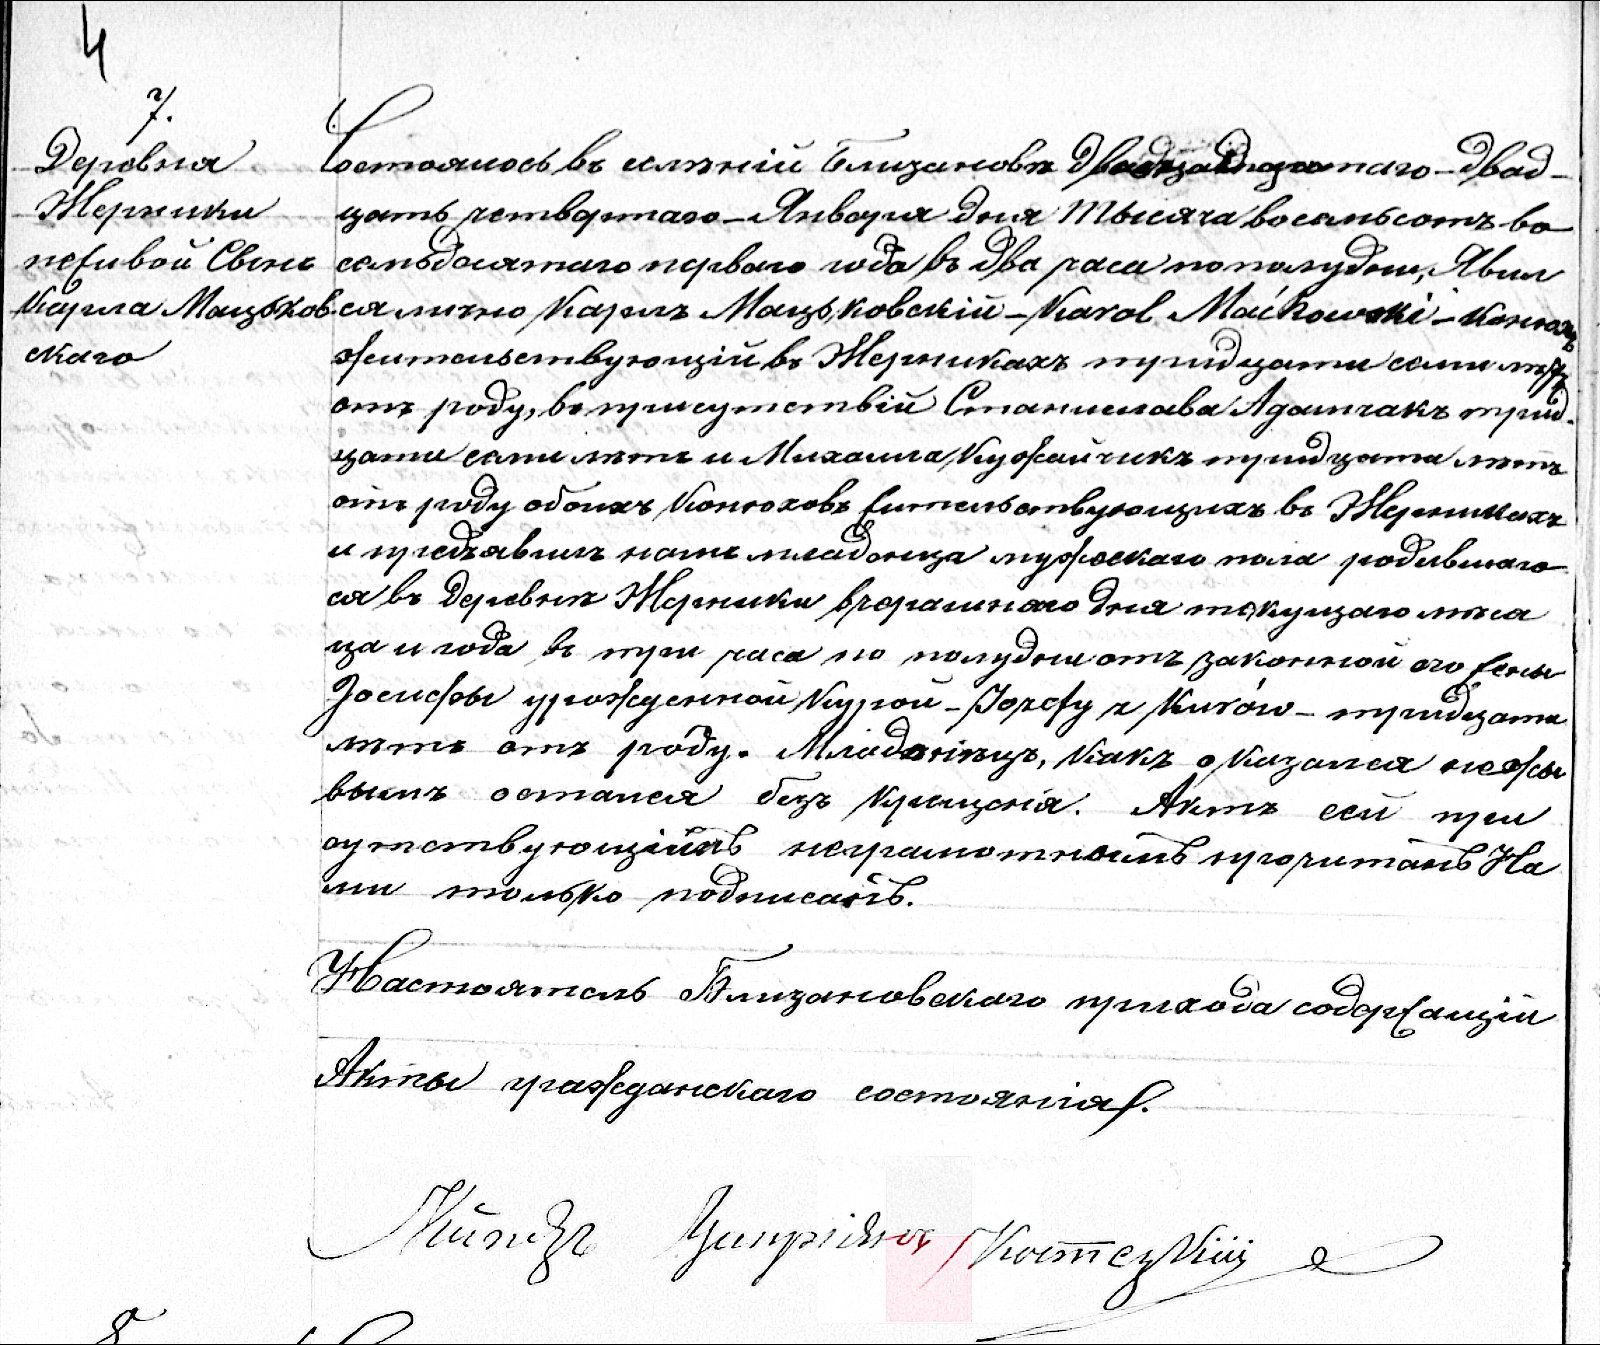 4
7.
Деревня
Жерники
неживой Сынъ
Карла Мацьков
скаго
Состоялось въ селеніи Близановѣ двад
цать четвертаго Января дня тысяча восемьсотъ во
семьдесятаго перваго года въ два часа по полудни, Явил
ся лично Карлъ Мацьковскій – Karol Maćkowski – Конюхъ
жительствующій въ Жерникахъ тридцати семи лѣтъ
отъ роду, въ присутствіи Станислава Адамчакъ трид
цати семи лѣтъ и Михаила Кужайчикъ тридцати лѣтъ
отъ роду обоихъ Конюховъ жительствующихъ въ Жерникахъ
и предъявилъ намъ младенца мужескаго пола родившаго
ся въ Деревнѣ Жерники вчерашняго дня текущаго мѣся
ца и года въ три часа по полудни отъ законной его жены
Іосифы урожденной Курой – Józefy z Kurów – тридцати
лѣтъ отъ роду. Младенецъ, какъ оказался нежи
вымъ остался безъ крещенія. Актъ сей при
сутствующимъ неграмотнымъ прочитанъ На
ми только подписанъ.
Настоятель Близановскаго прихода содержащій
Акты гражданскаго состоянія.
Ксендзъ Ципріянъ Костецкій
8